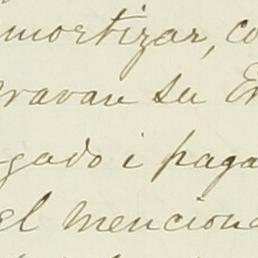 amortizar, co
gravan su E
gado i paga
el menciona